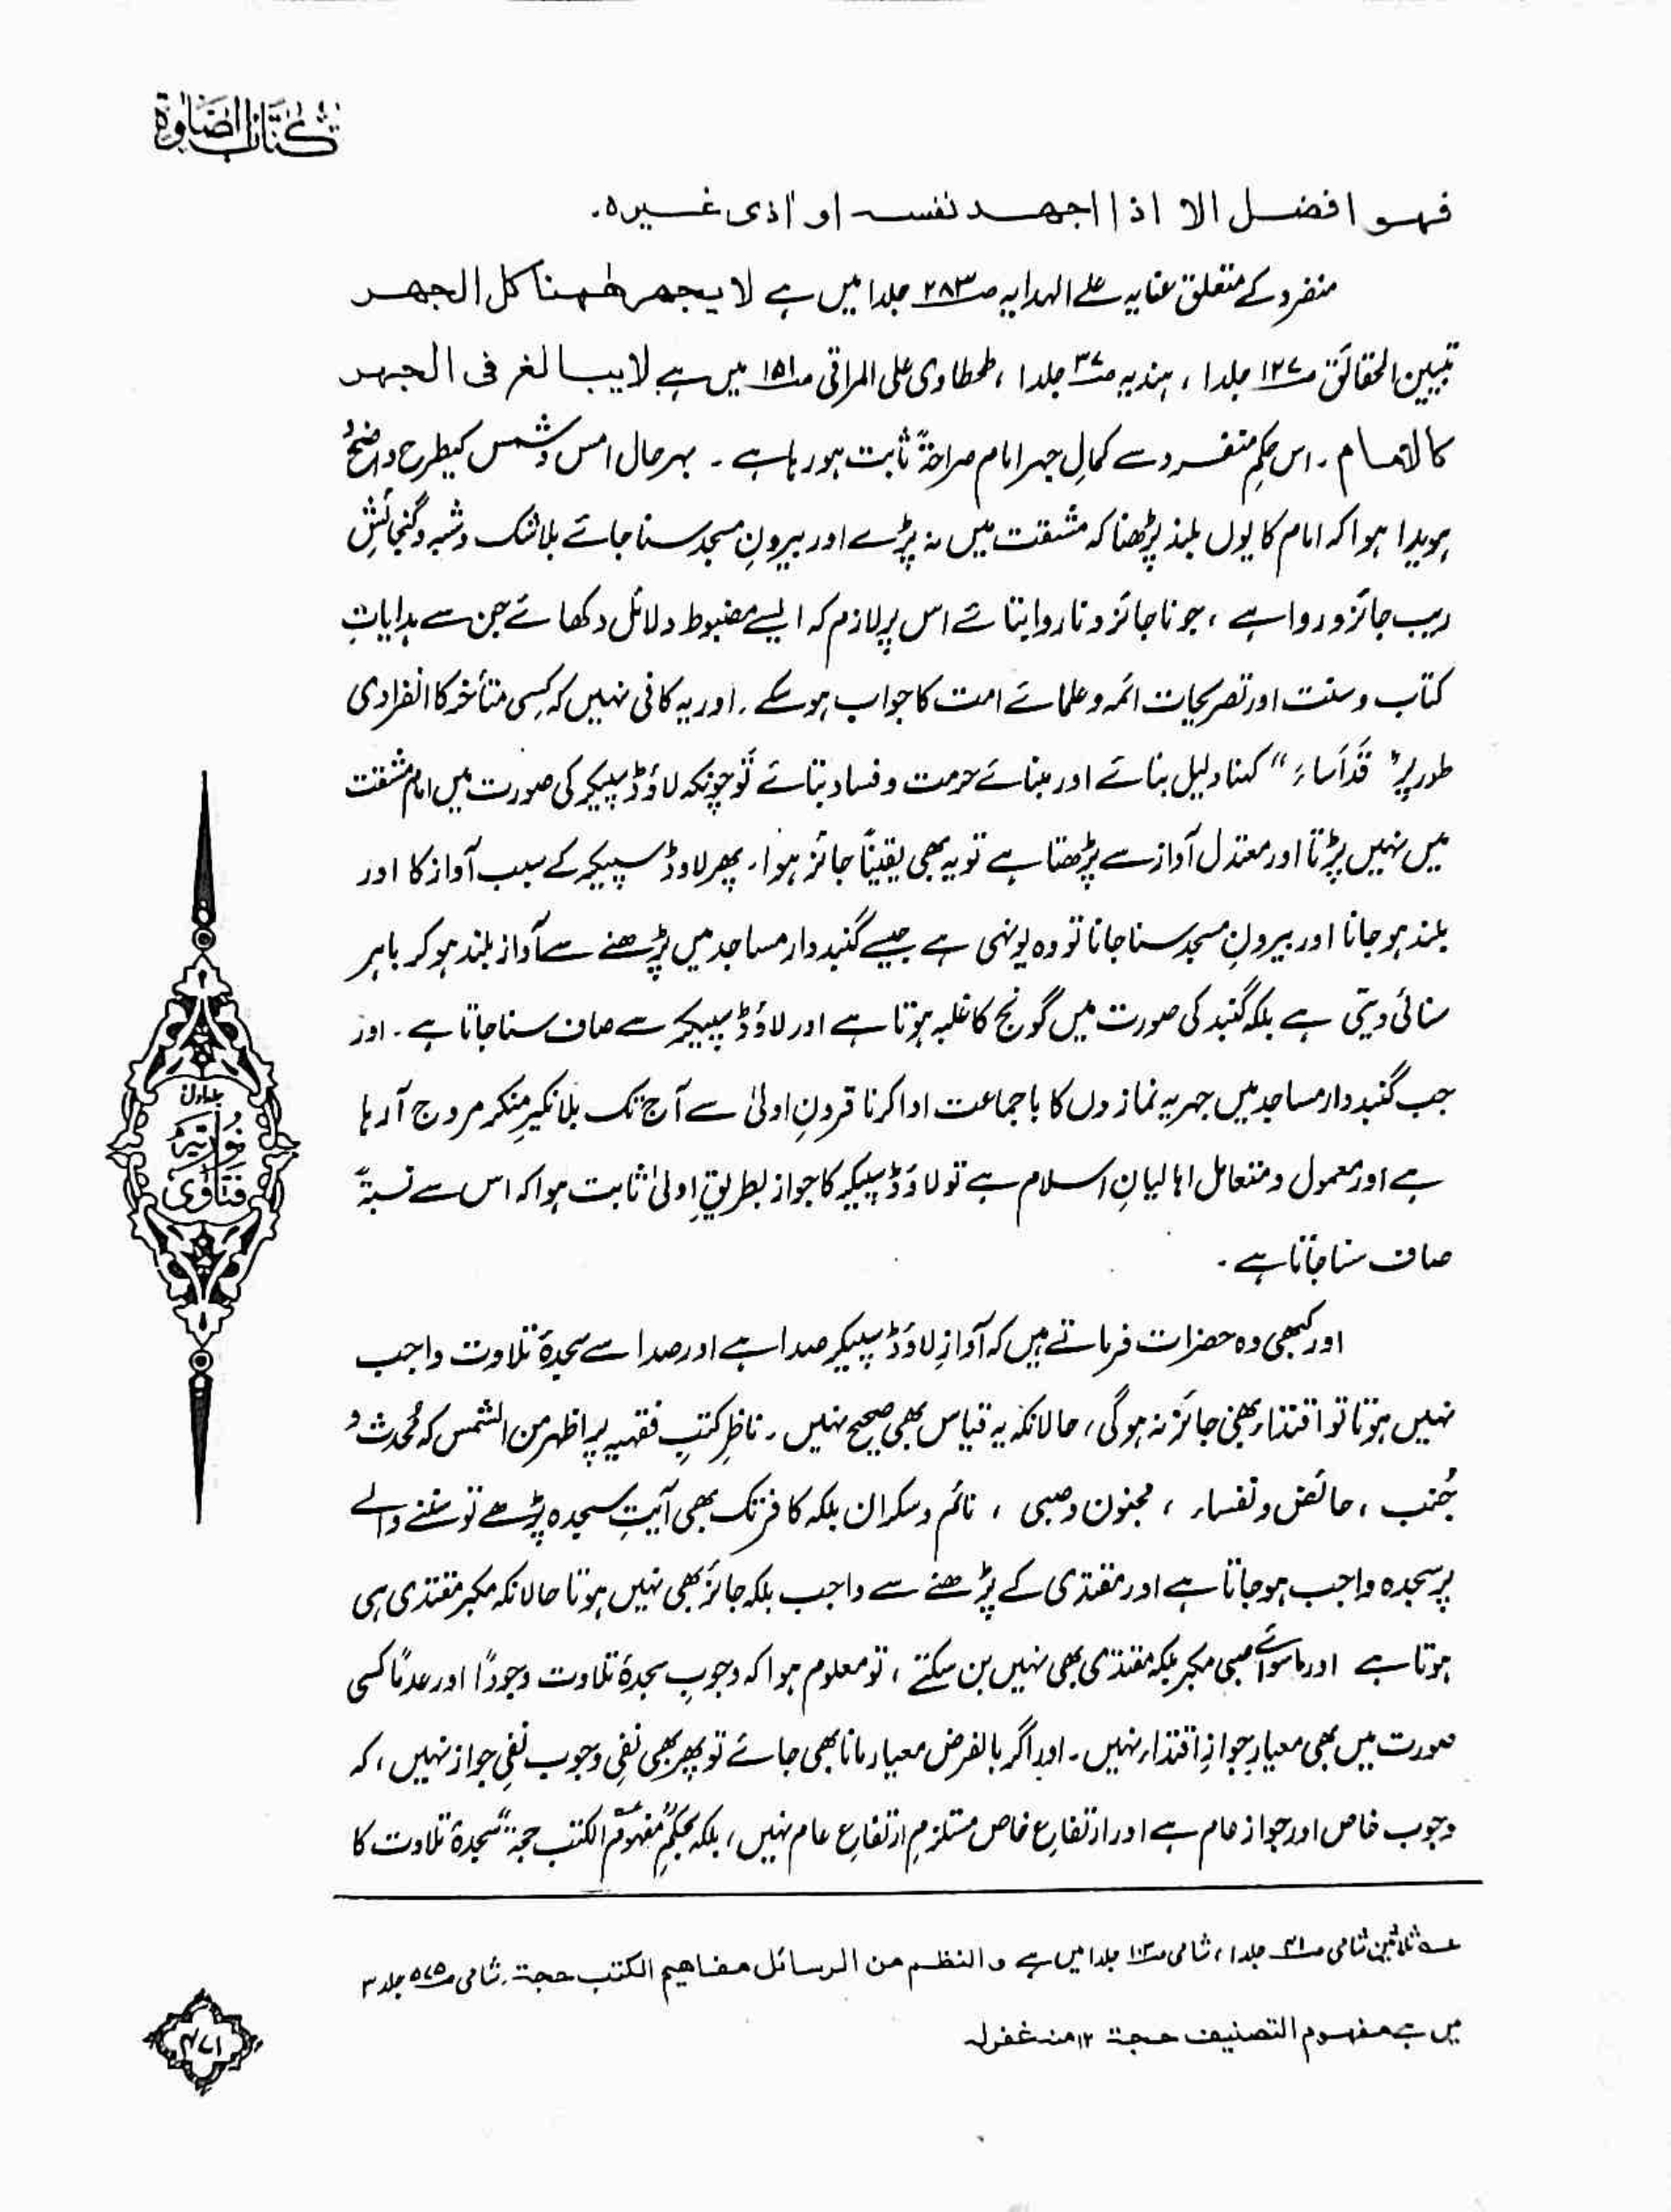 كتاب الصلوة
فهو افضل الا اذا اجهد نفسه او اٰذى غيره.
منفرد کے متعلق عنایہ علے الہدایہ صـ۲۸۳ جلد۱ میں ہے لا يجهر ههنا كل الجهر
تبیین الحقائق صـ۱۲۷ جلد۱ ، ہندیہ صـ۳۷ جلد۱ ، طحطاوی علی المراقی صـ۱۵۱ میں ہے لا يبالغ فى الجهر
كالامام ۔ اس حکمِ منفرد سے کمالِ جہر امام صراحۃً ثابت ہو رہا ہے ۔ بہرحال امس و شمس کیطرح واضح و
ہویدا ہوا کہ امام کا یوں بلند پڑھنا کہ مشقت میں نہ پڑے اور بیرونِ مسجد سنا جائے بلا شک و شبہ و گنجائشِ
ریب جائز و روا ہے ، جو ناجائز و ناروا بتائے اس پر لازم کہ ایسے مضبوط دلائل دکھائے جن سے ہدایاتِ
کتاب و سنت اور تصریحات ائمہ و علمائے امت کا جواب ہو سکے ۔ اور یہ کافی نہیں کہ کسی متأخر کا انفرادی
طور پر " قَدْ اَسَاءَ " کہنا دلیل بنائے اور مبنائے حرمت و فساد بتائے تو چونکہ لاؤڈ سپیکر کی صورت میں امام مشقت
میں نہیں پڑتا اور معتدل آواز سے پڑھتا ہے تو یہ بھی یقیناً جائز ہوا ۔ پھر لاوڈ سپیکر کے سبب آواز کا اور
بلند ہو جانا اور بیرونِ مسجد سنا جانا تو وہ یونہی ہے جیسے گنبد دار مساجد میں پڑھنے سے آواز بلند ہو کر باہر
سنائی دیتی ہے بلکہ گنبد کی صورت میں گونج کا غلبہ ہوتا ہے اور لاؤڈ سپیکر سے صاف سنا جاتا ہے ۔ اور
جب گنبد دار مساجد میں جہریہ نمازوں کا باجماعت ادا کرنا قرونِ اولیٰ سے آج تک بلا نکیرِ منکر مروج آ رہا
ہے اور معمول و متعامل اہالیانِ اسلام ہے تو لاؤڈ سپیکر کا جواز بطریقِ اولیٰ ثابت ہوا کہ اس سے نسبۃً
صاف سنا جاتا ہے ۔
اور کبھی وہ حضرات فرماتے ہیں کہ آوازِ لاؤڈ سپیکر صدا ہے اور صدا سے سجدۂ تلاوت واجب
نہیں ہوتا تو اقتداء بھی جائز نہ ہوگی ، حالانکہ یہ قیاس بھی صحیح نہیں ۔ ناظرِ کتبِ فقہیہ پر اظہر من الشمس کہ مُحدث و
جُنب ، حائض و نفساء ، مجنون و صبی ، نائم و سکران بلکہ کافر تک بھی آیتِ سجدہ پڑھے تو سننے والے
پر سجدہ واجب ہو جاتا ہے اور مقتدی کے پڑھنے سے واجب بلکہ جائز بھی نہیں ہوتا حالانکہ مکبر مقتدی ہی
ہوتا ہے اور ماسوائے صبی مکبر بلکہ مقتدی بھی نہیں بن سکتے ، تو معلوم ہوا کہ وجوبِ سجدۂ تلاوت وجودًا اور عدمًا کسی
صورت میں بھی معیارِ جوازِ اقتداء نہیں ۔ اور اگر بالفرض معیار مانا بھی جائے تو پھر بھی نفیِ وجوب نفیِ جواز نہیں ، کہ
وجوب خاص اور جواز عام ہے اور ارتفاعِ خاص مستلزمِ ارتفاعِ عام نہیں ، بلکہ بحکمِ "مفهوم الكتب حجة" سجدۂ تلاوت کا
عـہ ثلاثین شامی صـ۳۱ جلد۱ ، شامی صـ۱۰۳ جلد۱ میں ہے و النظم من الرسائل مفاهيم الكتب حجة ۔ شامی صـ۵۷۵ جلد۳
میں ہے مفهوم التصنيف حجة ۱۲ منہ غفرلہ
جلد اول
فتاویٰ نوریہ
۴۷۱